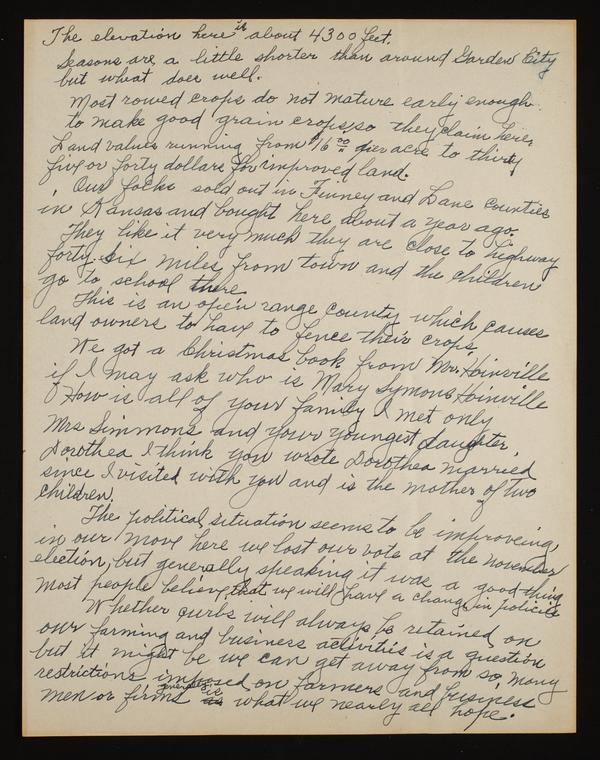 The elevation here is about 4300 feet.
Seasons are a little shorter than around Garden City
but what does well.
Most rowed crops do not mature early enough
to make good grain crops, so they claim here,
Land values running from $16 00 per acre to thirty
five or forty dollars for improved land.
Our folks sold out in Finney and Lane counties
in Kansas and bought here about a year ago.
They like it very much they are close to highway
forty. Six miles from town and the children
go to school there.
This is an open range county which causes
land owners to have to fence their crops.
We got a Christmas book from Mr. Hoinville
if I may ask who is Mary Symons Hoinville
How is all of your family I met only
Mrs Simmons and your youngest daughter,
Dorothea I think you wrote Dorothea married
since I visited with you and is the mother of two
children.
The political situation seems to be improveing,
in our move here we lost our vote at the november
election, but generally speaking it was a good thing
most people believe that we will have a change in policies
Whether curbs will always be retained on
our farming and business activities is a question
but it might be we can get away from so many
restrictions imposed on farmers and business
men or firms generally is what we nearly all hope.